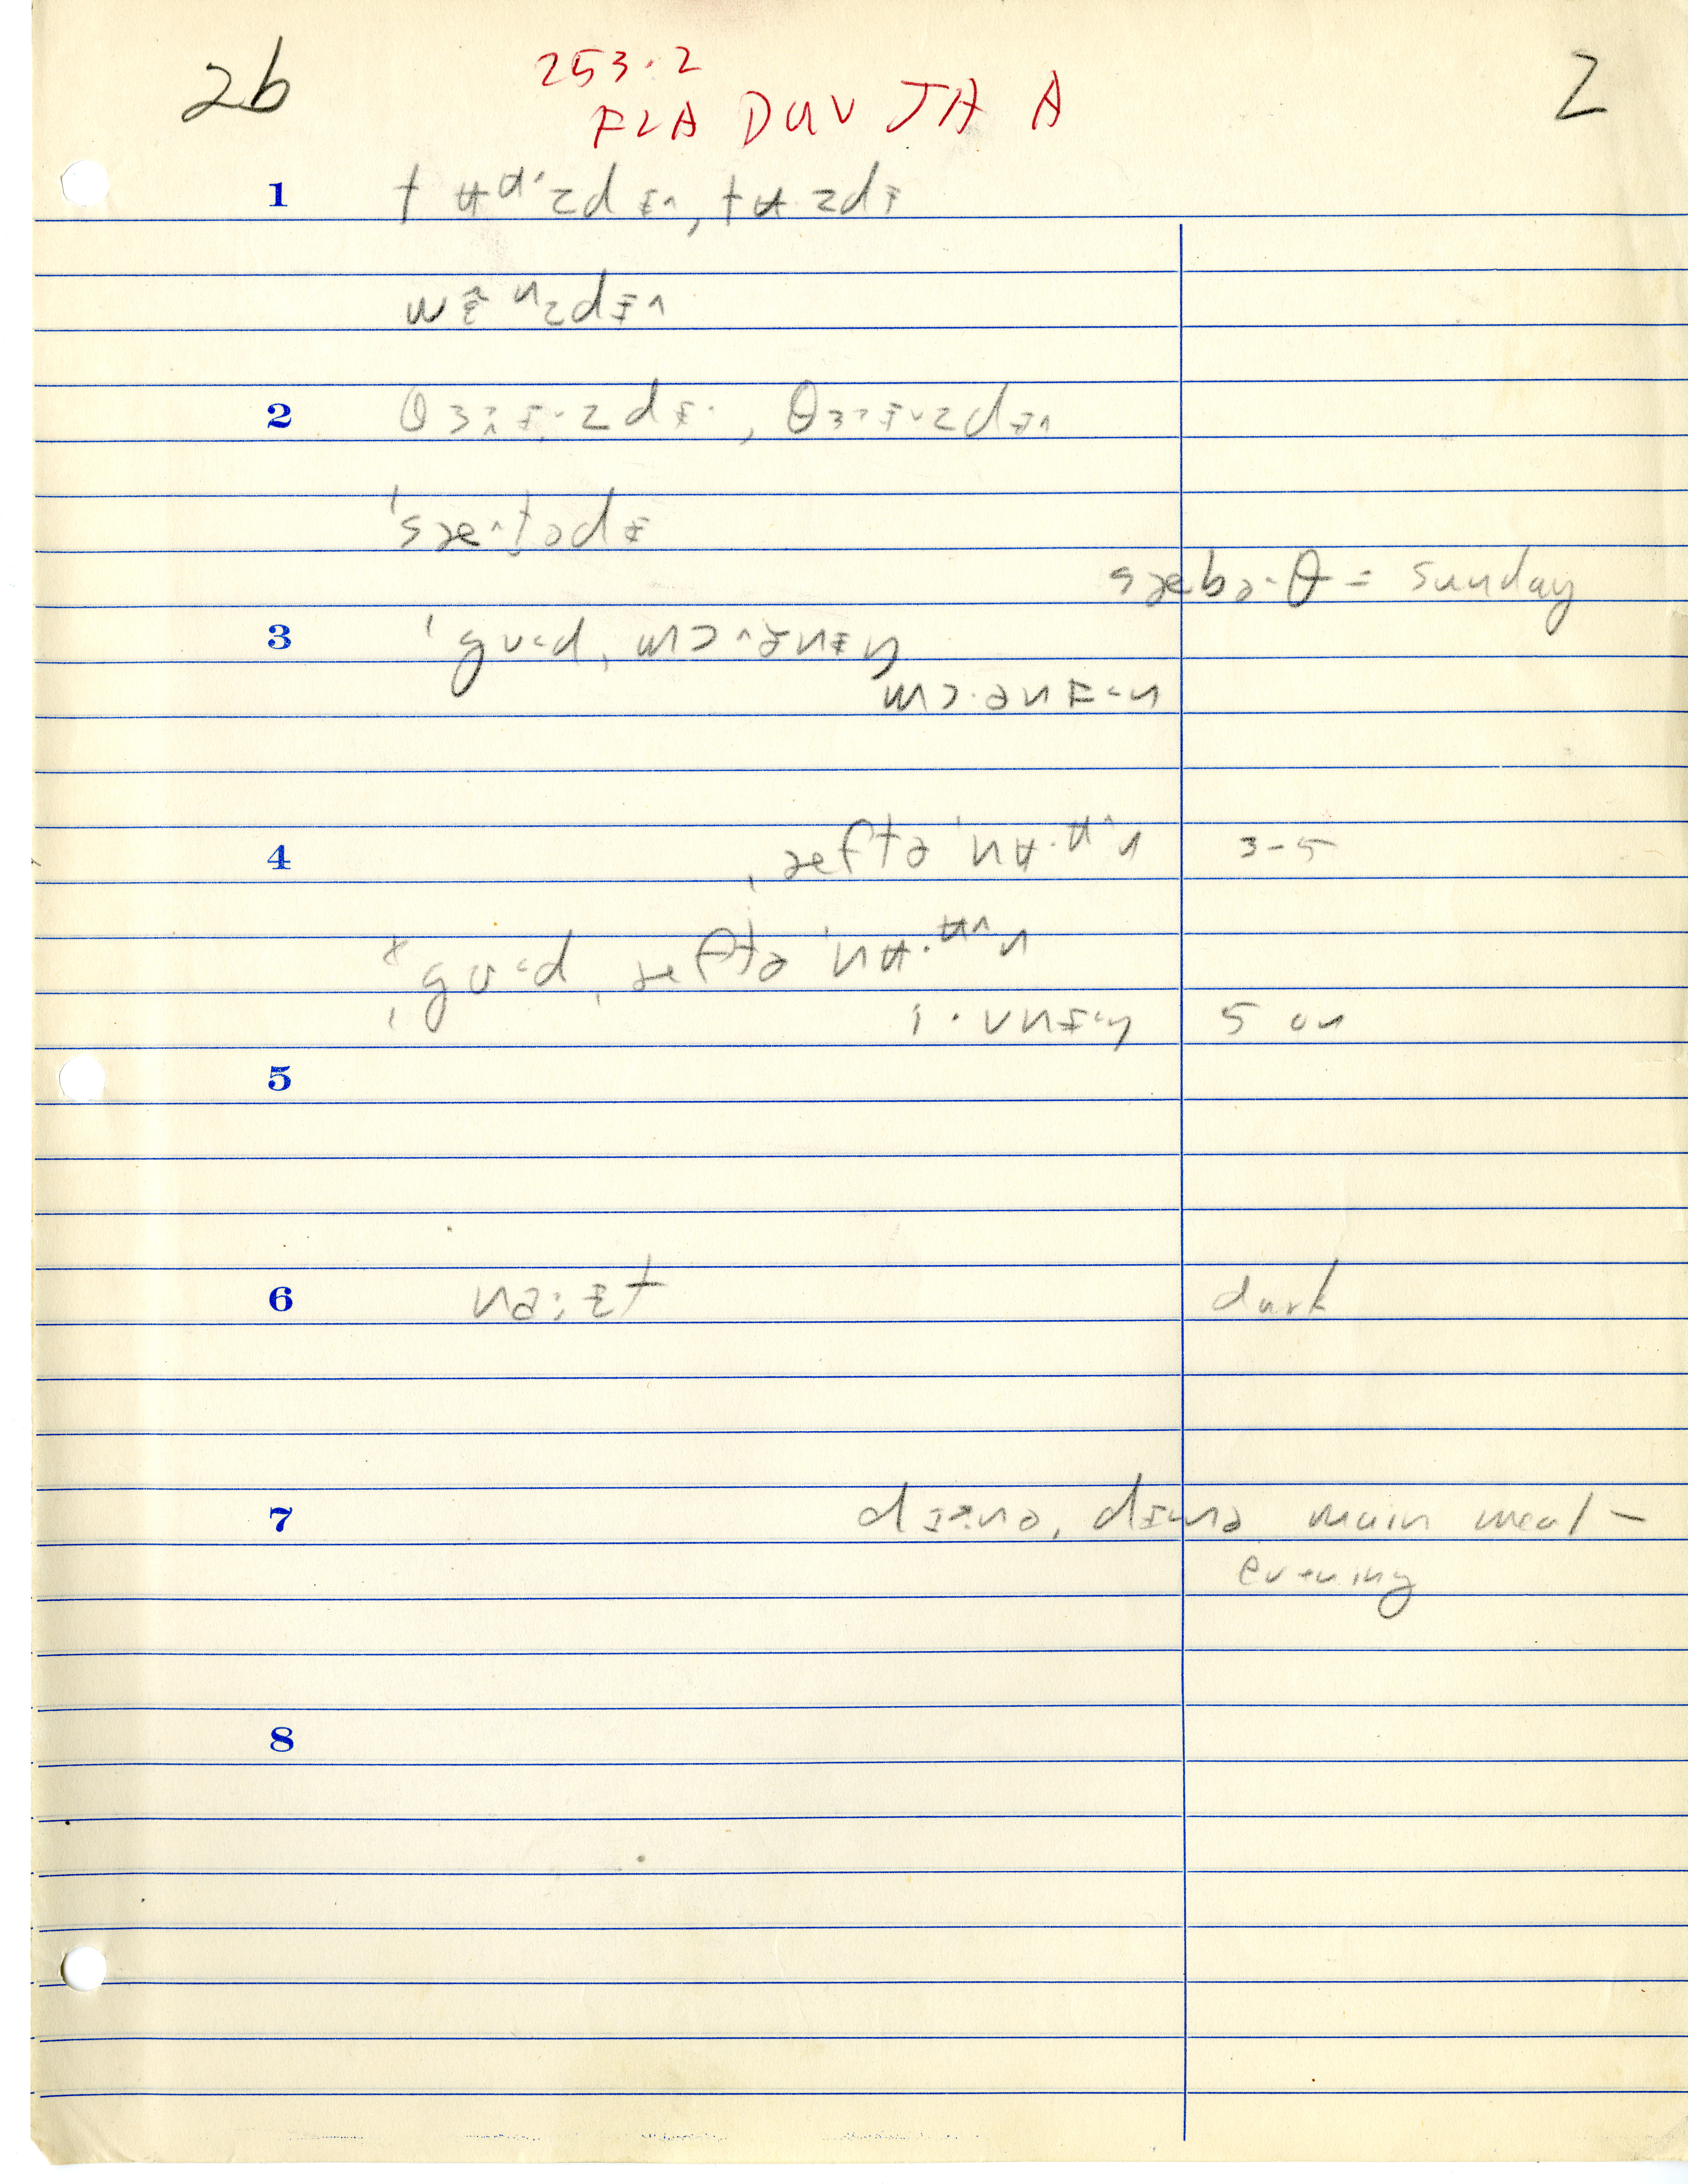 2b 253.2 2
FLA DUV JA A
1 tʉᵘ·zdɨ˄, tʉ·zdɨ
wɛ̃ⁿzdɨ˄
2 θɜɨ·zdɨ·, θɜɨ·zdɨ˄
ˈsæ˄t̬ədɨ
sæbə·θ = sunday
3 ˈgʊ·d, mɔ˄·ənɨŋ
mɔ·ənɨ·n
4 ˌæftəˈnʉ·ᵘ˄n 3-5
* ˌgʊ·d, ˌæftəˈnʉ·ᵘ˄n
i·vnɨŋ 5 on
5
6 na·ɨt dark
7 dɨnə, dɨnə main meal -
evening
8